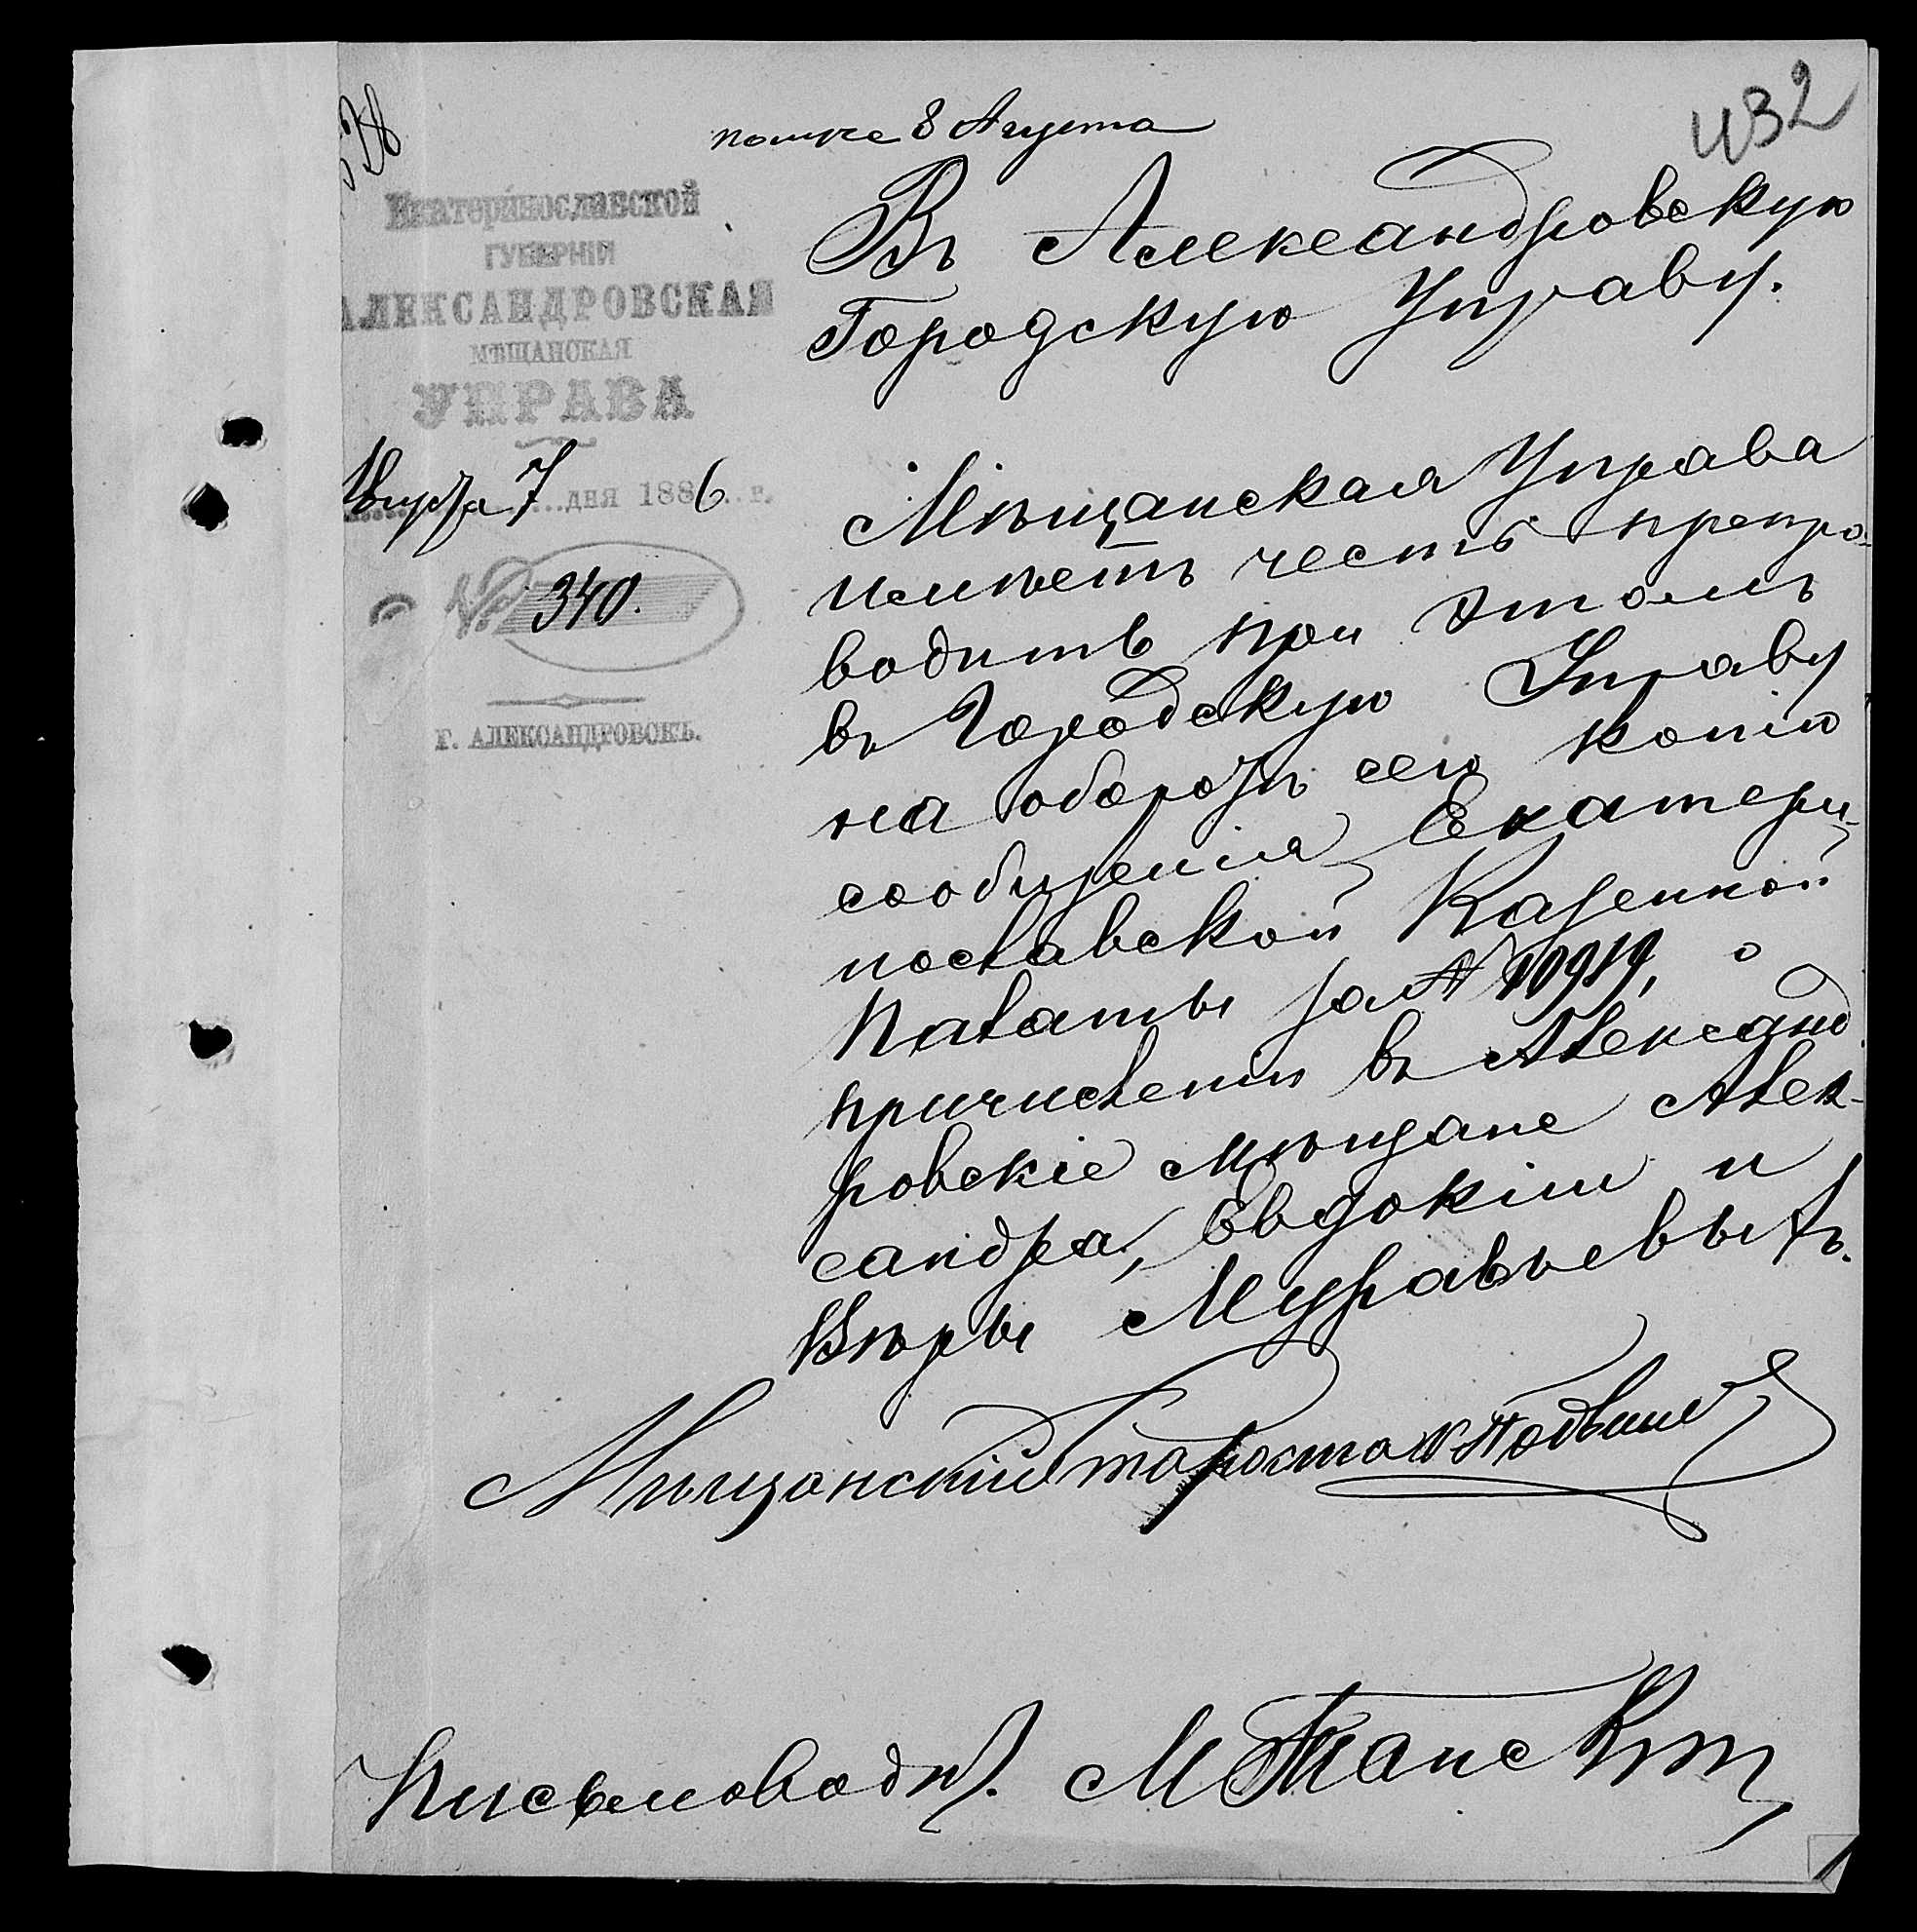 432
получе 8 Августа
Екатеринославской
ГУБЕРНІИ
АЛЕКСАНДРОВСКАЯ
МѢЩАНСКАЯ
УПРАВА
Августа 7 дня 1886 г.
№ 340.
г. АЛЕКСАНДРОВСКЪ.
Въ Александровскую
Городскую Управу.
Мѣщанская Управа
имѣетъ честь препро-
водить при этомъ
въ Городскую Управу
на оборотѣ сего копію
сообщенія Екатери-
нославской Казенной
Палаты за № 10919, о
причисленіи въ Александ
ровскіе мѣщане Алек-
сандра, Евдокіи и
Вѣры Муравьевыхъ.
Мѣщанскій Староста
Письмоводит.